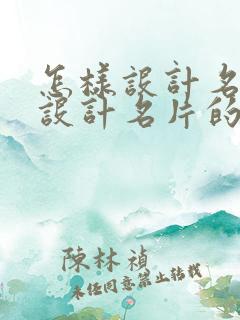 怎樣設計名
設計名片的
陳林禎
未經同意禁止轉載